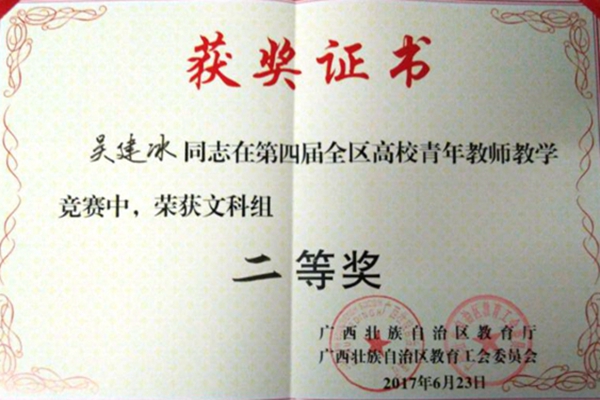 获奖证书
吴建冰同志在第四届全区高校青年教师教学
竞赛中，荣获文科组
二等奖
广西壮族自治区教育厅
广西壮族自治区教育工会委员会
2017年6月23日